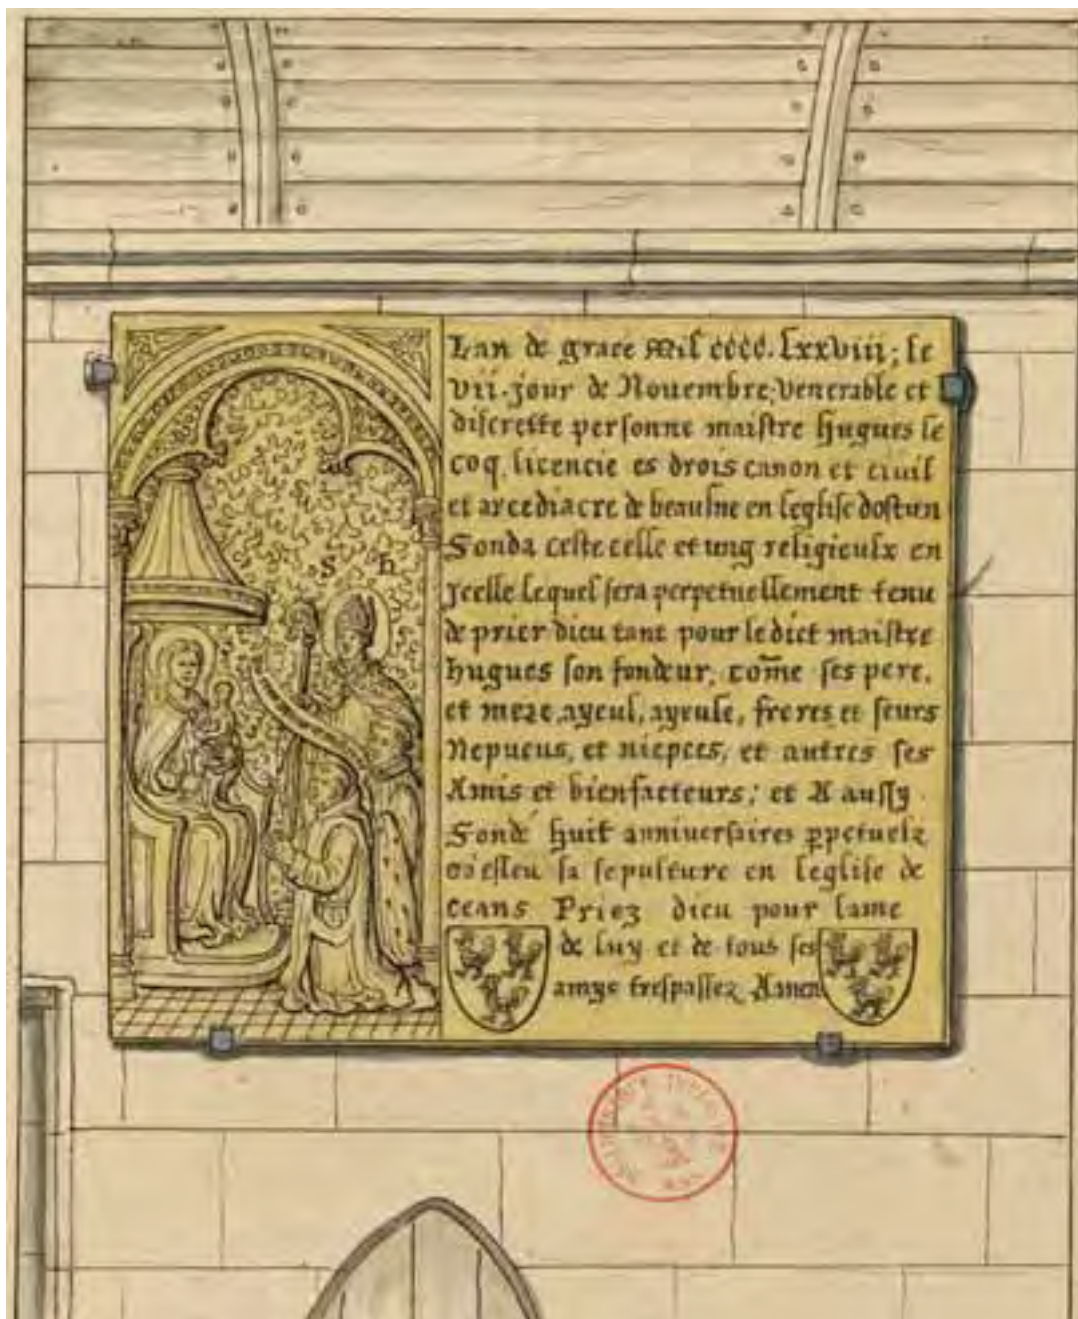 S h
Lan de grace Mil cccc. Lxxviii; le
vii. jour de Nouembre, venerable et
discrette personne maistre hugues le
coq, licencie es drois canon et ciuil
et arcediacre de beaulne en leglise dostun
Fonda ceste celle et ung religieulx en
jcelle Lequel sera perpetuellement tenu
de prier dieu tant pour le dict maistre
hugues son fondeur, cōme ses pere,
et mere, ayeul, ayeule, freres et seurs
Nepueus, et niepces, et autres ses
Amis et bienfacteurs; et A aussy
Fondé huit anniuersaires ꝑpetuelz
sa sepulture en leglise de
ceans Priez dieu pour lame
de luy et de tous ses
amys trespassez Amen